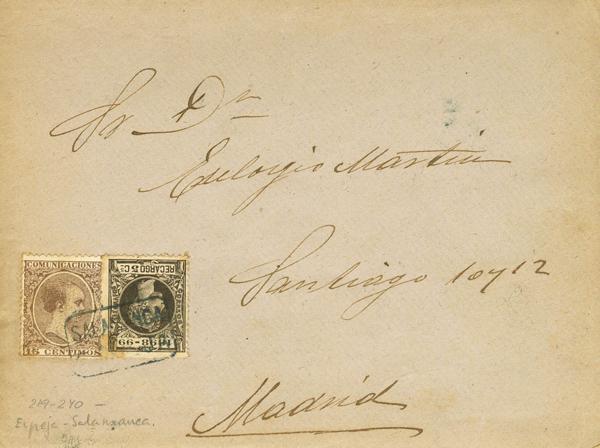 Sr Dn
Eulogio Martin
Santiago 10 y 12
Madrid
COMUNICACIONES
15 CENTIMOS
RECARGO 5 Cs
1898-99
SALAMANCA
219-240 -
Espeja-Salamanca.